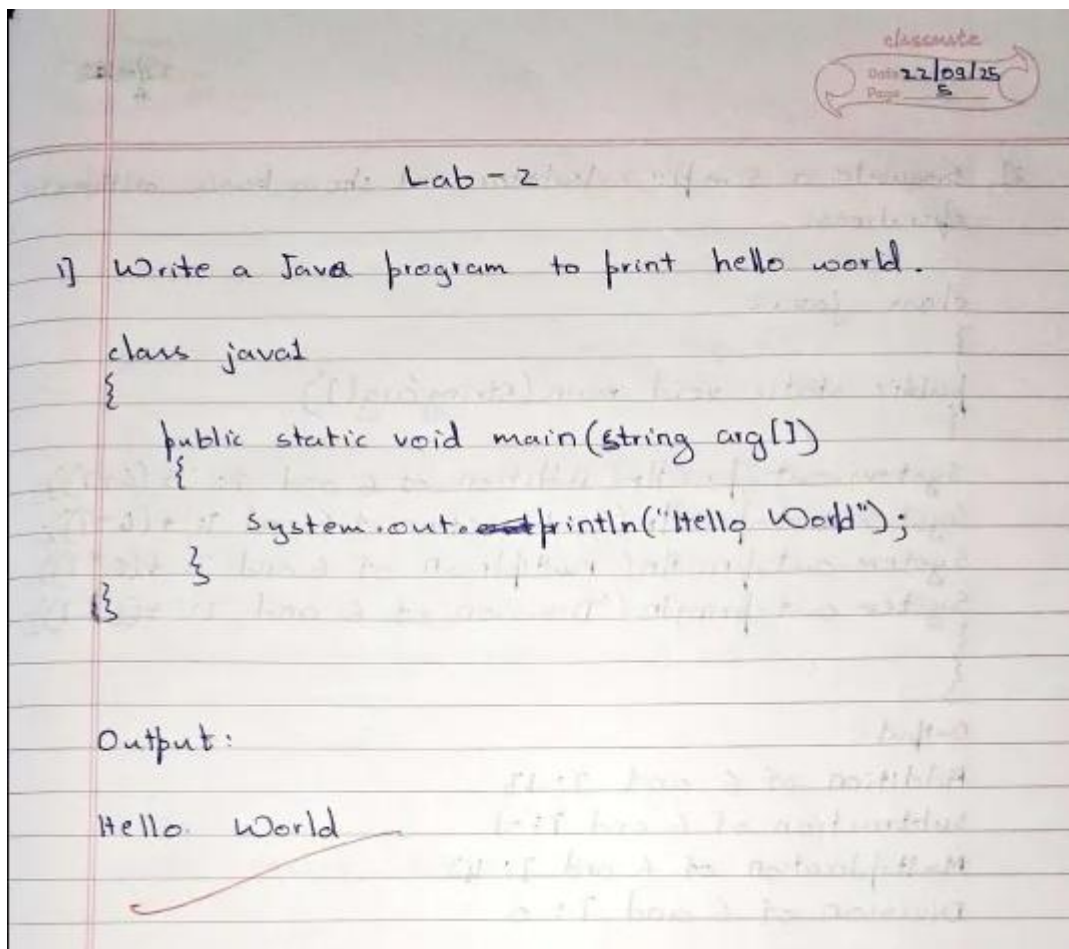 classmate
Date 22/09/25
Page 5
Lab-2
1] Write a Java program to print hello world.
class java1
{
public static void main(string arg[])
{
System.out.println("Hello World");
}
}
Output:
Hello World